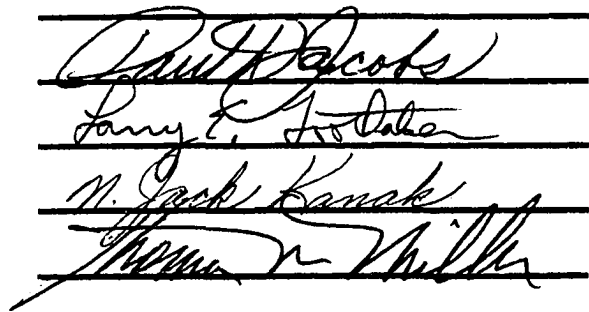 Paul D Jacobs
Larry E. Toothaker
N. Jack Kanak
Thomas W Miller